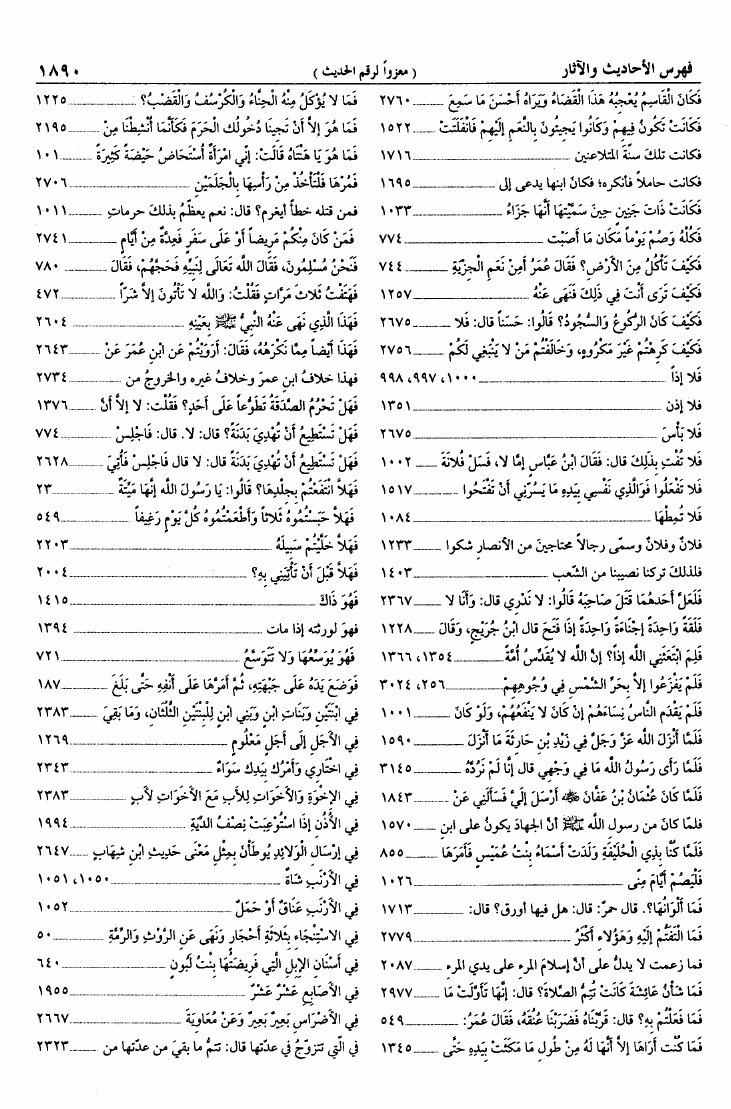 فهرس الأحاديث والآثار
( معزواً لرقم الحديث )
١٨٩٠
فَكَانَ الْقَاسِمُ يُعْجِبُهُ هَذَا الْقَضَاءُ وَيَرَاهُ أَحْسَنَ مَا سَمِعَ ٢٧٦٠
فَكَانَتْ تَكُونُ فِيهِمْ وَكَانُوا يَجِيئُونَ بِالنَّعَمِ إِلَيْهِمْ فَانْفَلَتَتْ ١٥٢٢
فكانت تلك سنّة المتلاعنين ١٧١٦
فكانت حاملاً فأنكره؛ فكان ابنها يدعى إلى ١٦٩٥
فَكَانَتْ ذَاتَ جَنِينٍ حِينَ سَمَّيْتُهَا أَنَّهَا جَزَاءُ ١٠٣٣
فَكُلْهُ وَصُمْ يَوْماً مَكَانَ مَا أَصَبْتَ ٧٧٤
فَكَيْفَ تَأْكُلُ مِنَ الأَرْضِ؟ فَقَالَ عُمَرُ أَمِنْ نَعَمِ الْجِزْيَةِ ٧٤٤
فَكَيْفَ تَرَى أَنْتَ فِي ذَلِكَ فَنَهَى عَنْهُ ١٢٥٧
فَكَيْفَ كَانَ الرُّكُوعُ وَالسُّجُودُ؟ قَالُوا: حَسَناً قال: فَلا ٢٦٧٥
فَكَيْفَ كَرِهْتُمْ غَيْرَ مَكْرُوهٍ، وَخَالَفْتُمْ مَنْ لا يَنْبَغِي لَكُمْ ٢٧٥٦
فَلا إِذاً ١٠٠٠، ٩٩٧، ٩٩٨
فلا إذن ١٣٥١
فَلا بَأْسَ ٢٦٧٥
فَلا تُفْتِ بِذَلِكَ قال: فَقَالَ ابْنُ عَبَّاسٍ إِمَّا لا، فَسَلْ فُلانَةَ ١٠٠٢
فَلا تَفْعَلُوا فَوَالَّذِي نَفْسِي بِيَدِهِ مَا يَسُرُّنِي أَنْ تَفْتَحُوا ١٥١٧
فَلا تُمِطْهَا ١٠٨٤
فلانٌ وفلانٌ وسمّى رجالاً محتاجينَ من الأنصارِ شكوا ١٢٣٣
فلذلكَ تركنا نصيبنا من الشّعب ١٤٠٣
فَلَعَلَّ أَحَدَهُمَا قَتَلَ صَاحِبَهُ قَالُوا: لا نَدْرِي قال: وَأَنَا لا ٢٣٦٧
فَلَقَةً وَاحِدَةً إِجْنَاءَةً وَاحِدَةً إِذَا فَتَحَ قال ابْنُ جُرَيْجٍ، وَقَالَ ١٢٢٨
فَلِمَ ابْتَعَثَنِي اللَّه إِذاً؟ إِنَّ اللَّه لا يُقَدِّسُ أُمَّةً ١٣٥٤، ١٣٦٦
فَلَمْ يَفْزَعُوا إِلاَّ بِحَرِّ الشَّمْسِ فِي وُجُوهِهِمْ ٢٥٦، ٣٠٢٤
فَلَمْ يَقْدَمِ النَّاسُ نِسَاءَهُمْ إِنْ كَانَ لا يَنْفَعُهُمْ، وَلَوْ كَانَ ١٠٠١
فَلَمَّا أَنْزَلَ اللَّه عَزَّ وَجَلَّ فِي زَيْدِ بْنِ حَارِثَةَ مَا أَنْزَلَ ١٥٩٠
فَلَمَّا رَأَى رَسُولُ اللَّه مَا فِي وَجْهِي قال إِنَّا لَمْ نَرُدَّهُ ٣١٤٥
فَلَمَّا كَانَ عُثْمَانُ بْنُ عَفَّانَ ﵁ أَرْسَلَ إِلَيَّ فَسَأَلَنِي عَنْ ١٨٤٣
فلمّا كانَ من رسول الله ﷺ أنّ الجهادَ يكونُ على ابن ١٥٧٠
فَلَمَّا كُنَّا بِذِي الْحُلَيْفَةِ وَلَدَتْ أَسْمَاءُ بِنْتُ عُمَيْسٍ فَأَمَرَهَا ٨٥٥
فَلْيَصُمْ أَيَّامَ مِنًى ١٠٢٦
فَمَا أَلْوَانُهَا؟. قال حمرٌ: قال: هل فيها أورق؟ قال: ١٧١٣
فَمَا الْتَفْتُمْ إِلَيْهِ وَهَؤُلاءِ أَكْثَرُ ٢٧٧٩
فما زعمت لا يدلُّ على أنّ إسلامَ المرءِ على يدي المرء ٢٠٨٧
فَمَا شَأْنُ عَائِشَةَ كَانَتْ تُتِمُّ الصَّلاةَ؟ قال: إِنَّهَا تَأَوَّلَتْ مَا ٢٩٧٧
فَمَا فَعَلْتُمْ بِهِ؟ قال: قَرَّبْنَاهُ فَضَرَبْنَا عُنُقَهُ، فَقَالَ عُمَرُ: ٥٤٩
فَمَا كُنْت أَرَاهَا إِلاَّ أَنَّهَا لَهُ مِنْ طُولِ مَا مَكَثَتْ بِيَدِهِ حَتَّى ١٣٤٥
فَمَا لا يُؤْكَلُ مِنْهُ الْحِنَّاءُ وَالْكُرْسُفُ وَالْقَضْبُ؟ ١٢٢٥
فَمَا هُوَ إِلاَّ أَنْ تَجِينَا دُخُولَكَ الْحَرَمَ فَكَأَنَّمَا أَنْشَطْنَا مِنْ ٢١٩٥
فَمَا هُوَ يَا هَنْتَاهُ قَالَتْ: إِنِّي امْرَأَةٌ أُسْتَحَاضُ حَيْضَةً كَثِيرَةً ١٠١
فَمُرْهَا فَلْتَأْخُذْ مِنْ رَأْسِهَا بِالْجَلَمَيْنِ ٢٧٠٦
فمن قتله خطأ أيغرم؟ قال: نعم يعظّمُ بذلكَ حرمات ١٠١١
فَمَنْ كَانَ مِنْكُمْ مَرِيضاً أَوْ عَلَى سَفَرٍ فَعِدَّةٌ مِنْ أَيَّامٍ ٢٧٤١
فَنَحْنُ مُسْلِمُونَ، فَقَالَ اللَّه تَعَالَى لِنَبِيِّهِ فَحَجَّهُمْ، فَقَالَ ٧٨٠
فَهَتَفْتُ ثَلاثَ مَرَّاتٍ فَقُلْتُ: وَاللَّه لا تَأْتُونَ إِلاَّ شَرًّا ٤٧٢
فَهَذَا الَّذِي نَهَى عَنْهُ النَّبِيُّ ﷺ بِعَيْنِهِ ٢٦٠٤
فَهَذَا أَيْضاً مِمَّا نَكْرَهُهُ، فَقَالَ: أَرَوَيْتُمْ عَن ابْنِ عُمَرَ عَنْ ٢٦٤٣
فهذا خلافُ ابنِ عمرَ وخلافُ غيره والخروجُ من ٢٧٣٤
فَهَلْ تَحْرُمُ الصَّدَقَةُ تَطَوُّعاً عَلَى أَحَدٍ؟ فَقُلْت: لا إِلاَّ أَنَّ ١٣٧٦
فَهَلْ تَسْتَطِيعُ أَنْ تُهْدِيَ بَدَنَةً؟ قال: لا. قال: فَاجْلِسْ ٧٧٤
فَهَلْ تَسْتَطِيعُ أَنْ تُهْدِيَ بَدَنَةً قال: لا قال فَاجْلِسْ فَأُتِيَ ٢٦٢٨
فَهَلاَّ انْتَفَعْتُمْ بِجِلْدِهَا؟ قالُوا: يَا رَسُولَ اللَّه إِنَّهَا مَيْتَةٌ ٢٣
فَهَلاَّ حَبَسْتُمُوهُ ثَلاثاً وَأَطْعَمْتُمُوهُ كُلَّ يَوْمٍ رَغِيفاً ٥٤٩
فَهَلاَّ خَلَّيْتُمْ سَبِيلَهُ ٢٢٠٣
فَهَلاَّ قَبْلَ أَنْ تَأْتِيَنِي بِهِ؟ ٢٠٠٤
فَهُوَ ذَاكَ ١٤١٥
فهوَ لورثته إذا مات ١٣٩٤
فَهُوَ يُوَسِّعُهَا وَلا تَتَوَسَّعُ ٧٢١
فَوَضَعَ يَدَهُ عَلَى جَبْهَتِهِ، ثُمَّ أَمَرَّهَا عَلَى أَنْفِهِ حَتَّى بَلَغَ ١٨٧
فِي ابْنَتَيْنِ وَبَنَاتِ ابْنٍ وَبَنِي ابْنٍ لِلْبِنْتَيْنِ الثُّلُثَانِ، وَمَا بَقِيَ ٢٣٨٣
فِي الأَجَلِ إِلَى أَجَلٍ مَعْلُومٍ ١٢٦٩
فِي اخْتَارِي وَأَمْرُكِ بِيَدِكِ سَوَاءٌ ٢٣٤٣
فِي الإِخْوَةِ وَالأَخَوَاتِ لِلأَبِ مَعَ الأَخَوَاتِ لأَبٍ ٢٣٨٣
فِي الأُذُنِ إِذَا اسْتُوعِبَتْ نِصْفُ الدِّيَةِ ١٩٩٤
فِي إِرْسَالِ الْوَلائِدِ يُوطَأْنَ بِمِثْلِ مَعْنَى حَدِيثِ ابْنِ شِهَابٍ ٢٦٤٧
فِي الأَرْنَبِ شَاةٌ ١٠٥٠، ١٠٥١
فِي الأَرْنَبِ عَنَاقٌ أَوْ حَمَلٌ ١٠٥٢
فِي الاسْتِنْجَاءِ بِثَلاثَةِ أَحْجَارٍ وَنَهَى عَنِ الرَّوْثِ وَالرِّمَّةِ ٥٠
فِي أَسْنَانِ الإِبِلِ الَّتِي فَرِيضَتُهَا بِنْتُ لَبُونٍ ٦٤٠
فِي الأَصَابِعِ عَشْرٌ عَشْرٌ ١٩٥٥
فِي الأَضْرَاسِ بَعِيرٌ بَعِيرٌ وَعَنْ مُعَاوِيَةَ ٢٦٦٧
في الّتي تتزوّجُ في عدّتها قال: تتمُّ ما بقيَ من عدّتها من ٢٣٢٣